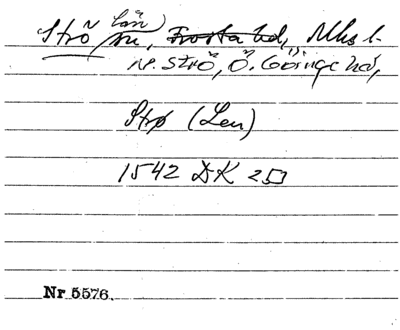 Strö län
sn, Frosta hd, Mlhs l.
N. Strö, Ö. Göinge hd,
Strø (Len)
1542 DK 25
Nr 5576.